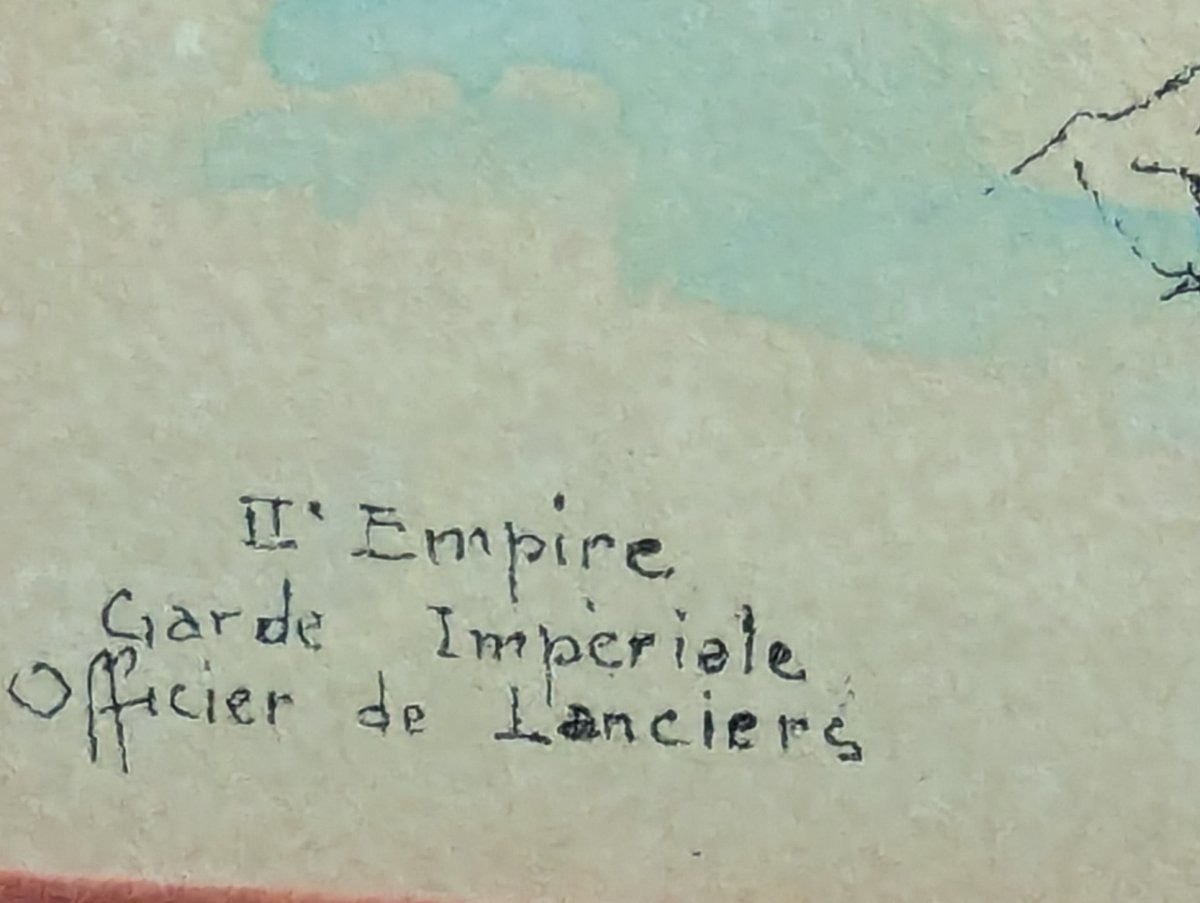 II' Empire
Garde Impériale
Officier de Lanciers